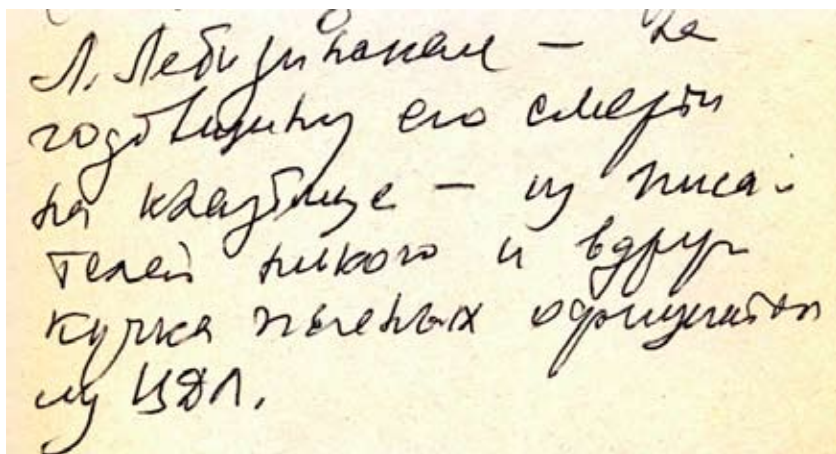 Л. Лебединском — на
годовщину его смерти
на кладбище — из писа-
телей никого и вдруг
кучка пьяных официанток
из ЦДЛ.